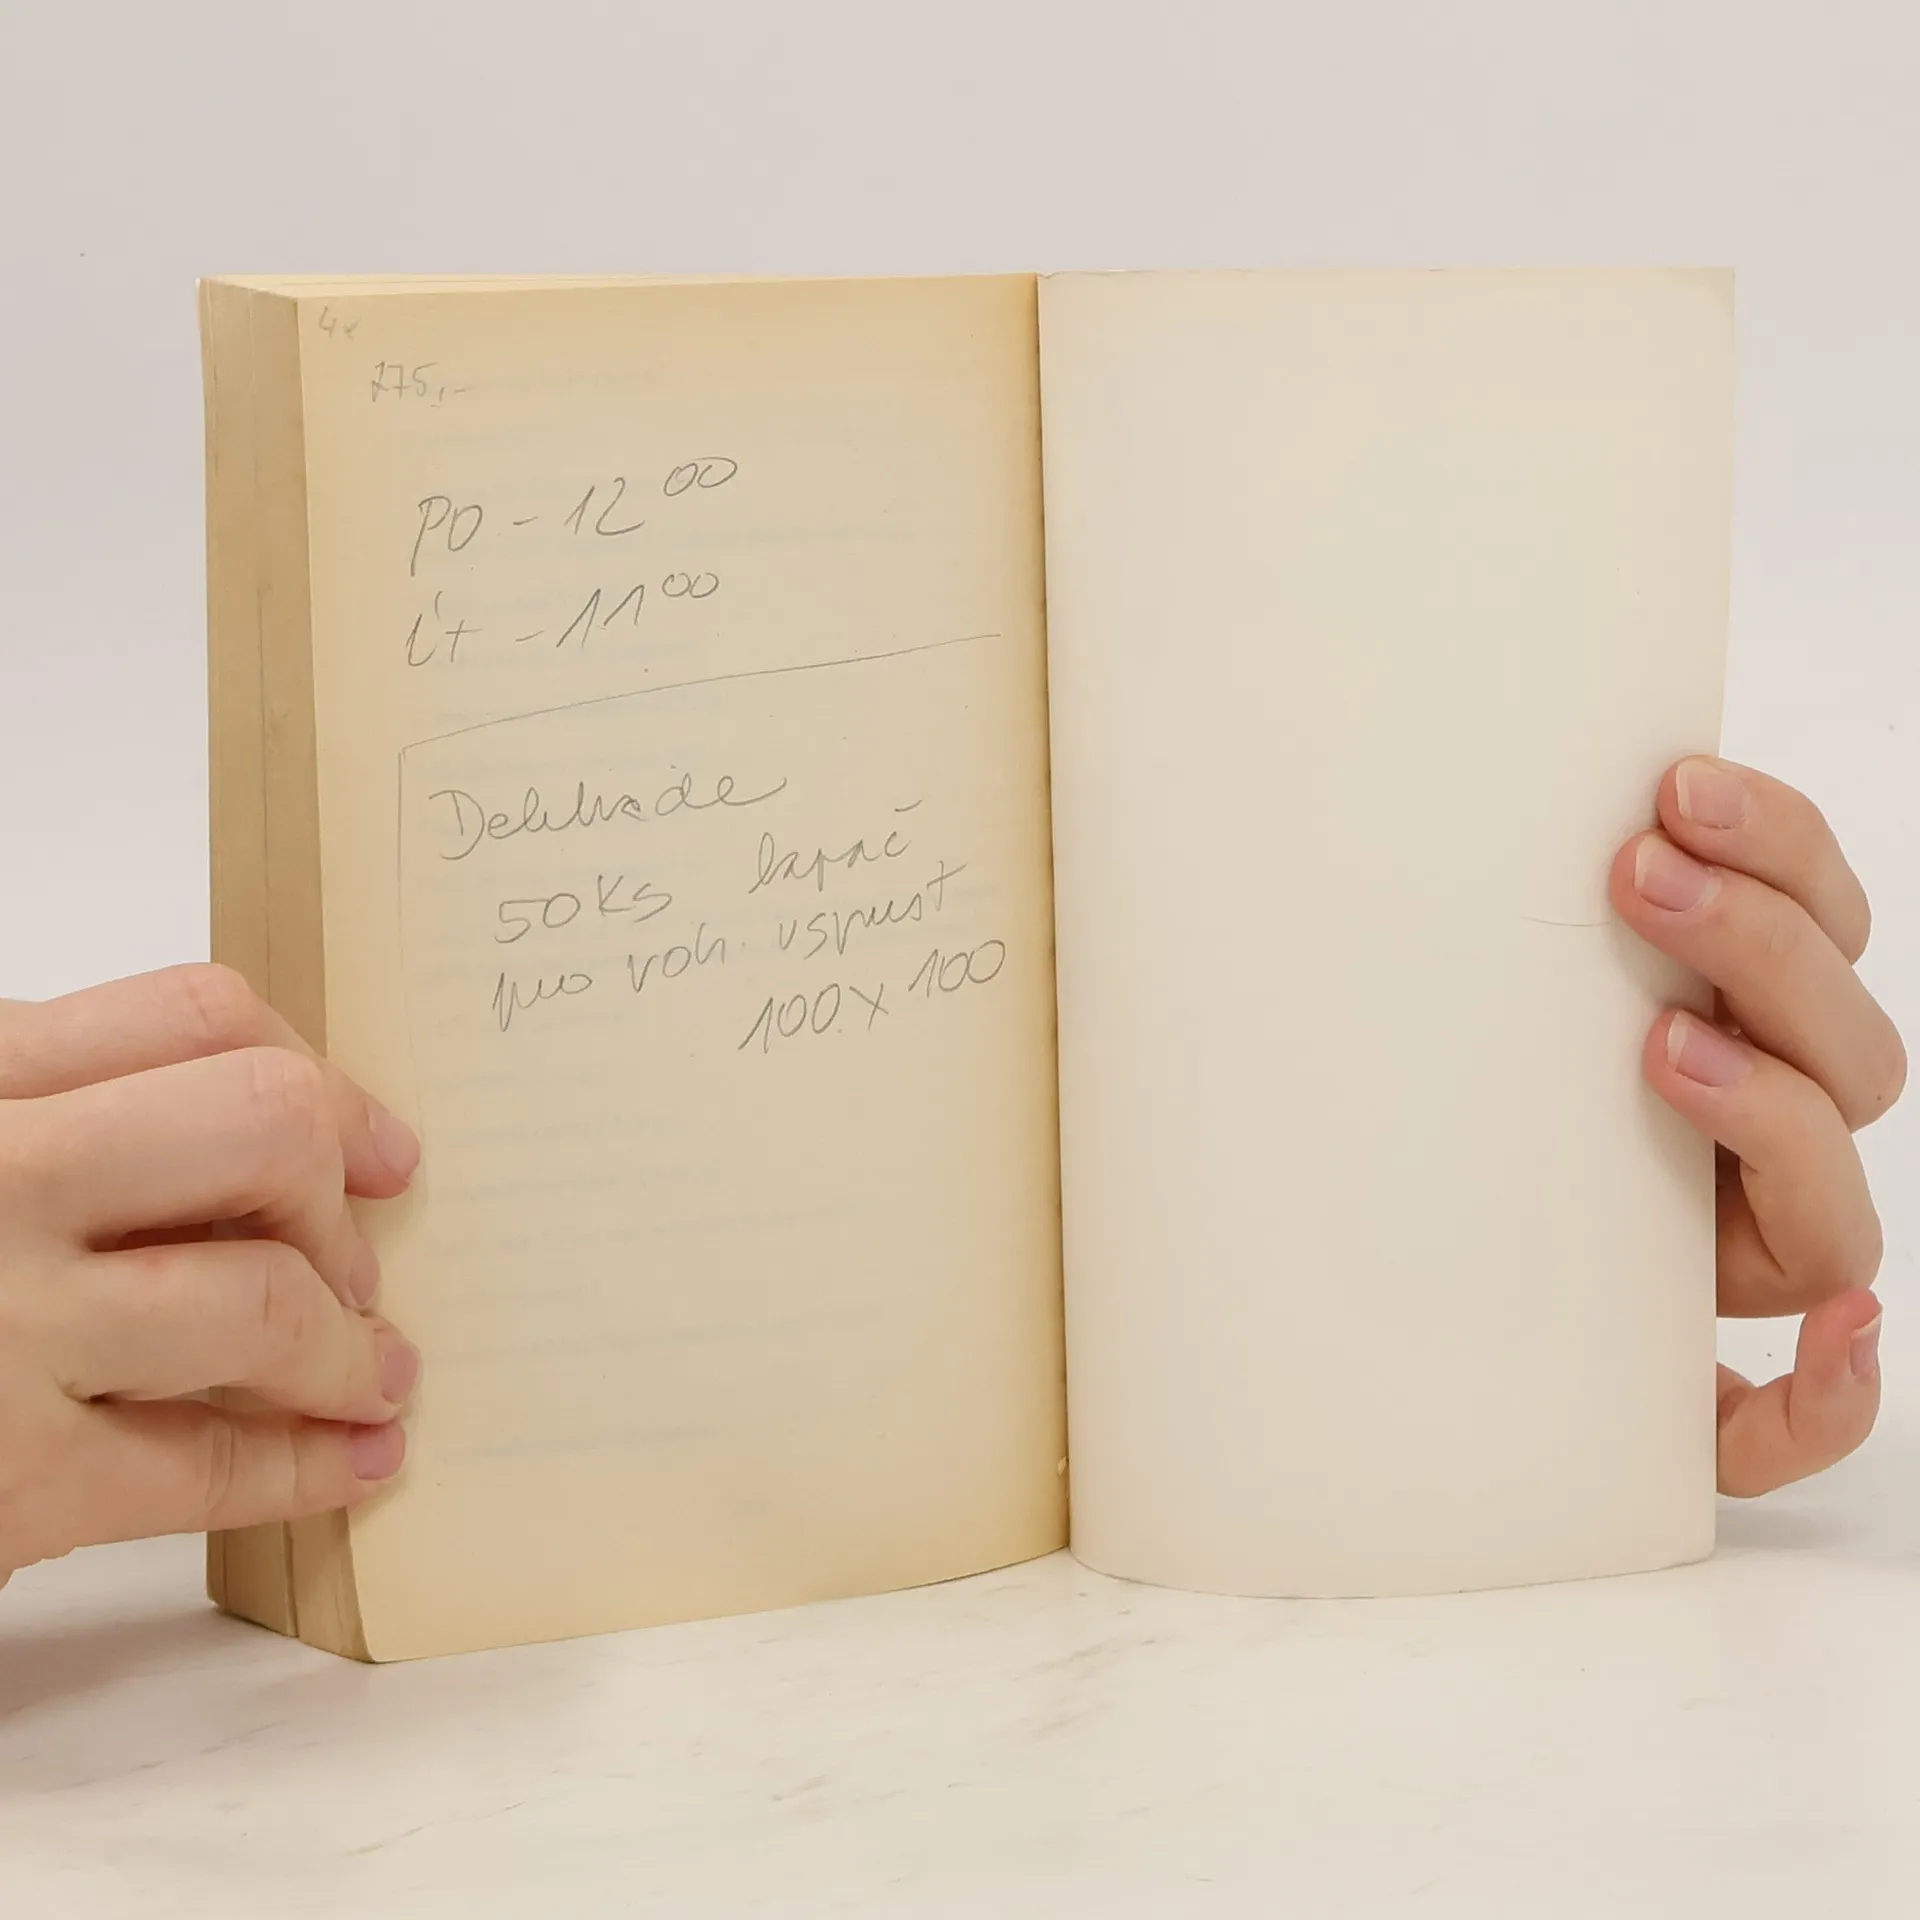 4x
275,-
PO - 12 00
Út - 11 00
50 Ks lapač
pro roh. vspust
100 x 100